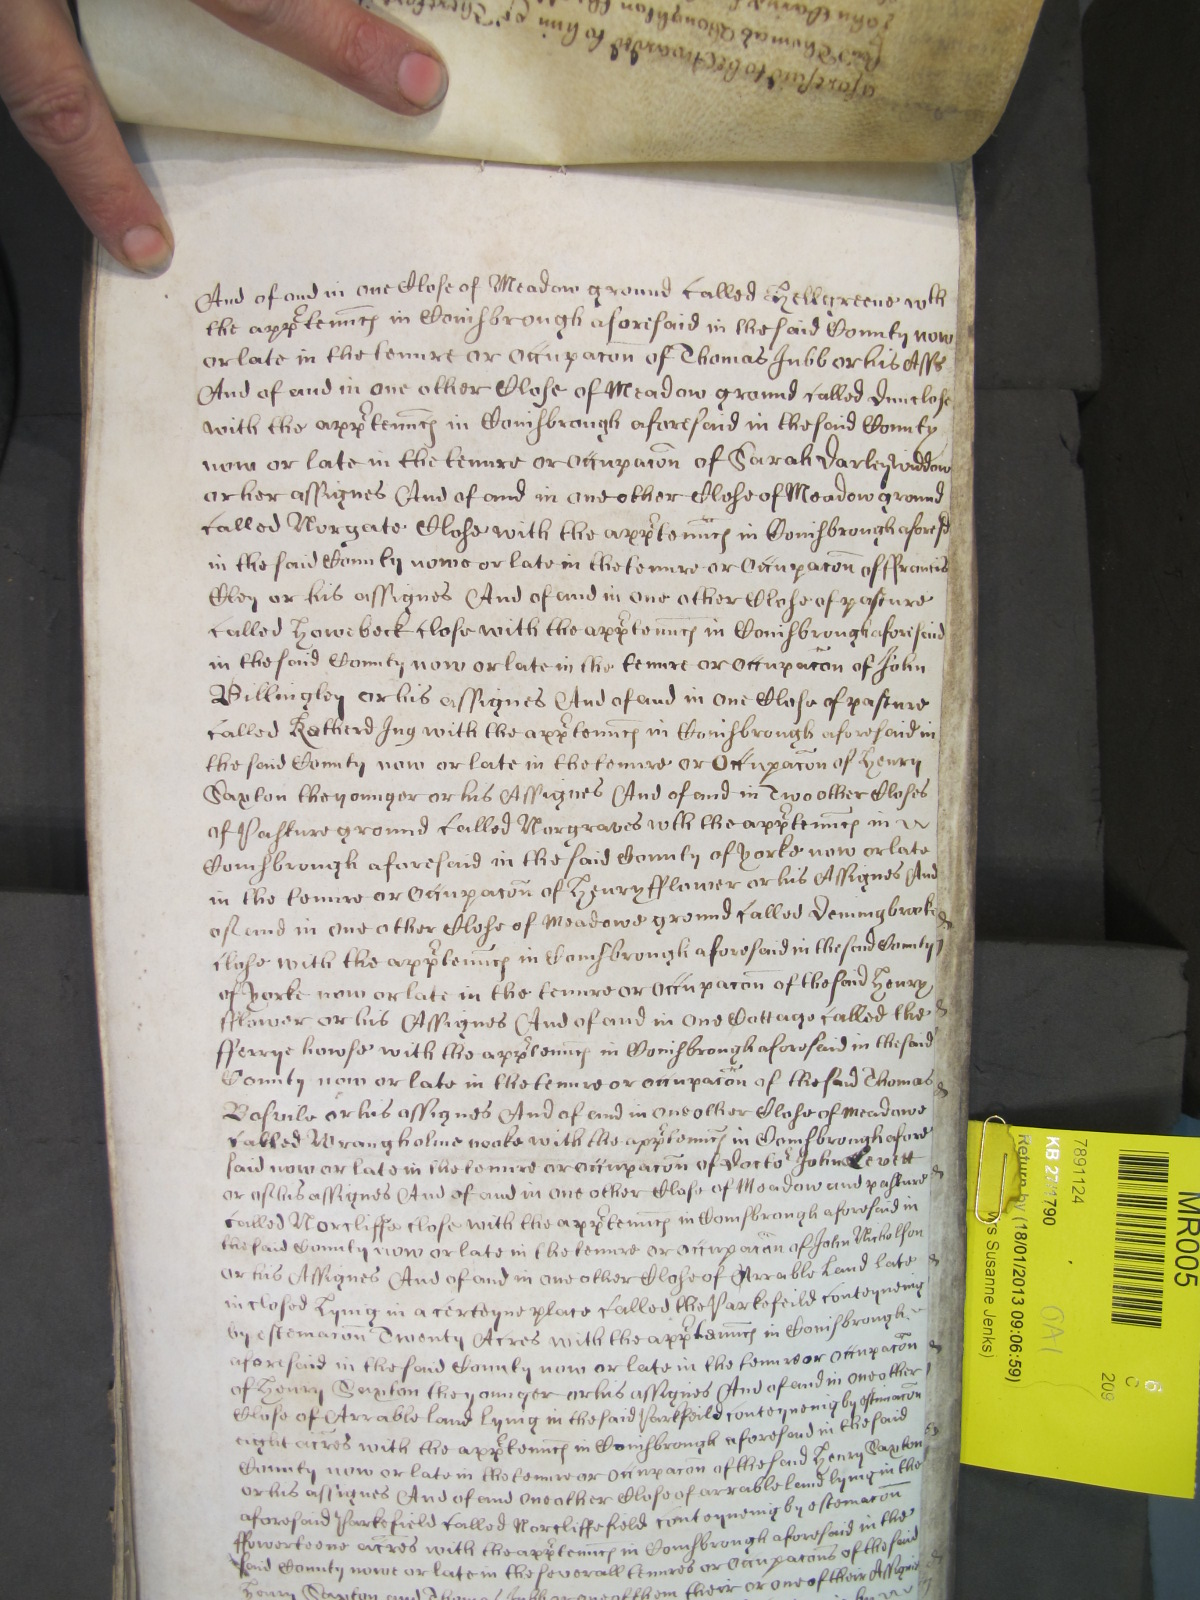 aforesaid to bee
said Thomas
John
And of and in one Close of Meadow ground Called Hellgreene wth
the app'tennc̄es in Conisbrough aforesaid in the said County now
or late in the tenure or Occupac̄on of Thomas Jubb or his Ass
And of and in one other Close of Meadow ground Called Dunclose
with the app'tennc̄es in Conisbrough aforesaid in the said County
now or late in the tenure or Occupac̄on of Sarah Darley widdow
or her assignes And of and in one other Close of Meadow ground
Called Norgate Close with the app'tennc̄es in Conisbrough aforesd
in the said County nowe or late in the tenure or Occupac̄on of ffrancis
Eley or his assignes And of and in one other Close of pasture
Called Howebeck Close with the app'tennc̄es in Conisbrough aforesaid
in the said County now or late in the tenure or Occupac̄on of John
Billingley or his assignes And of and in one Close of pasture
Called Katherd Ing with the app'tennc̄es in Conisbrough aforesaid in
the said County now or late in the tenure or Occupac̄on of Henry
Saxton the younger or his Assignes And of and in Two other Closes
of Pasture ground Called Norgraves wth the app'tennc̄es in
Conisbrough aforesaid in the said County of Yorke now or late
in the tenure or Occupac̄on of Henry fflower or his Assignes And
of and in one other Close of Meadowe ground Called Deningbrooke
Close with the app'tennc̄es in Conisbrough aforesaid in the said County
of Yorke now or late in the tenure or Occupac̄on of the said Henry
fflower or his Assignes And of and in one Cottage Called the
fferrye howse with the app'tennc̄es in Conisbrough aforesaid in the said
County now or late in the tenure or occupac̄on of the said Thomas
Bosvile or his assignes And of and in one other Close of meadowe
Called Wrangholme nooke with the app'tennc̄es in Conisbrough afore
said now or late in the tenure or occupac̄on of Docto' John Levett
or of his assignes And of and in one other Close of Meadow and pasture
Called Norcliffe Close with the app'tennc̄es in Conisbrough aforesaid in
the said County now or late in the tenure or occupac̄on of John Nicholson
or his Assignes And of and in one other Close of Arrable Land late
inclosed Lying in a certeyne place Called the Parkefeild conteyneing
by estemac̄on Twenty Acres with the app'tennc̄es in Conisbrough
aforesaid in the said County now or late in the tenure or occupac̄on
of Henry Saxton the younger or his assignes And of and in one other
Close of Arrable land Lying in the said Parkfeild conteyneing by estimac̄on
eight acres with the app'tennc̄es in Conisbrough aforesaid in the said
County now or late in the tenure or occupac̄on of the said Henry Saxton
or his assignes And of and one other Close of arrable land lying in the
aforesaid Parkefield Called Norcliffefield conteyneing by estemac̄on
ffowerteene acres with the app'tennc̄es in Conisbrough aforesaid in the
said County nowe or late in the severall tenures or Occupac̄ons of the said
Henry Saxton and Thomas Jubb or one of them their or one of their Assignes
MR005
6
C
209
7891124
KB 27/1790
OA1
Return by (18/01/2013 09:06:59)
Susanne Jenks)